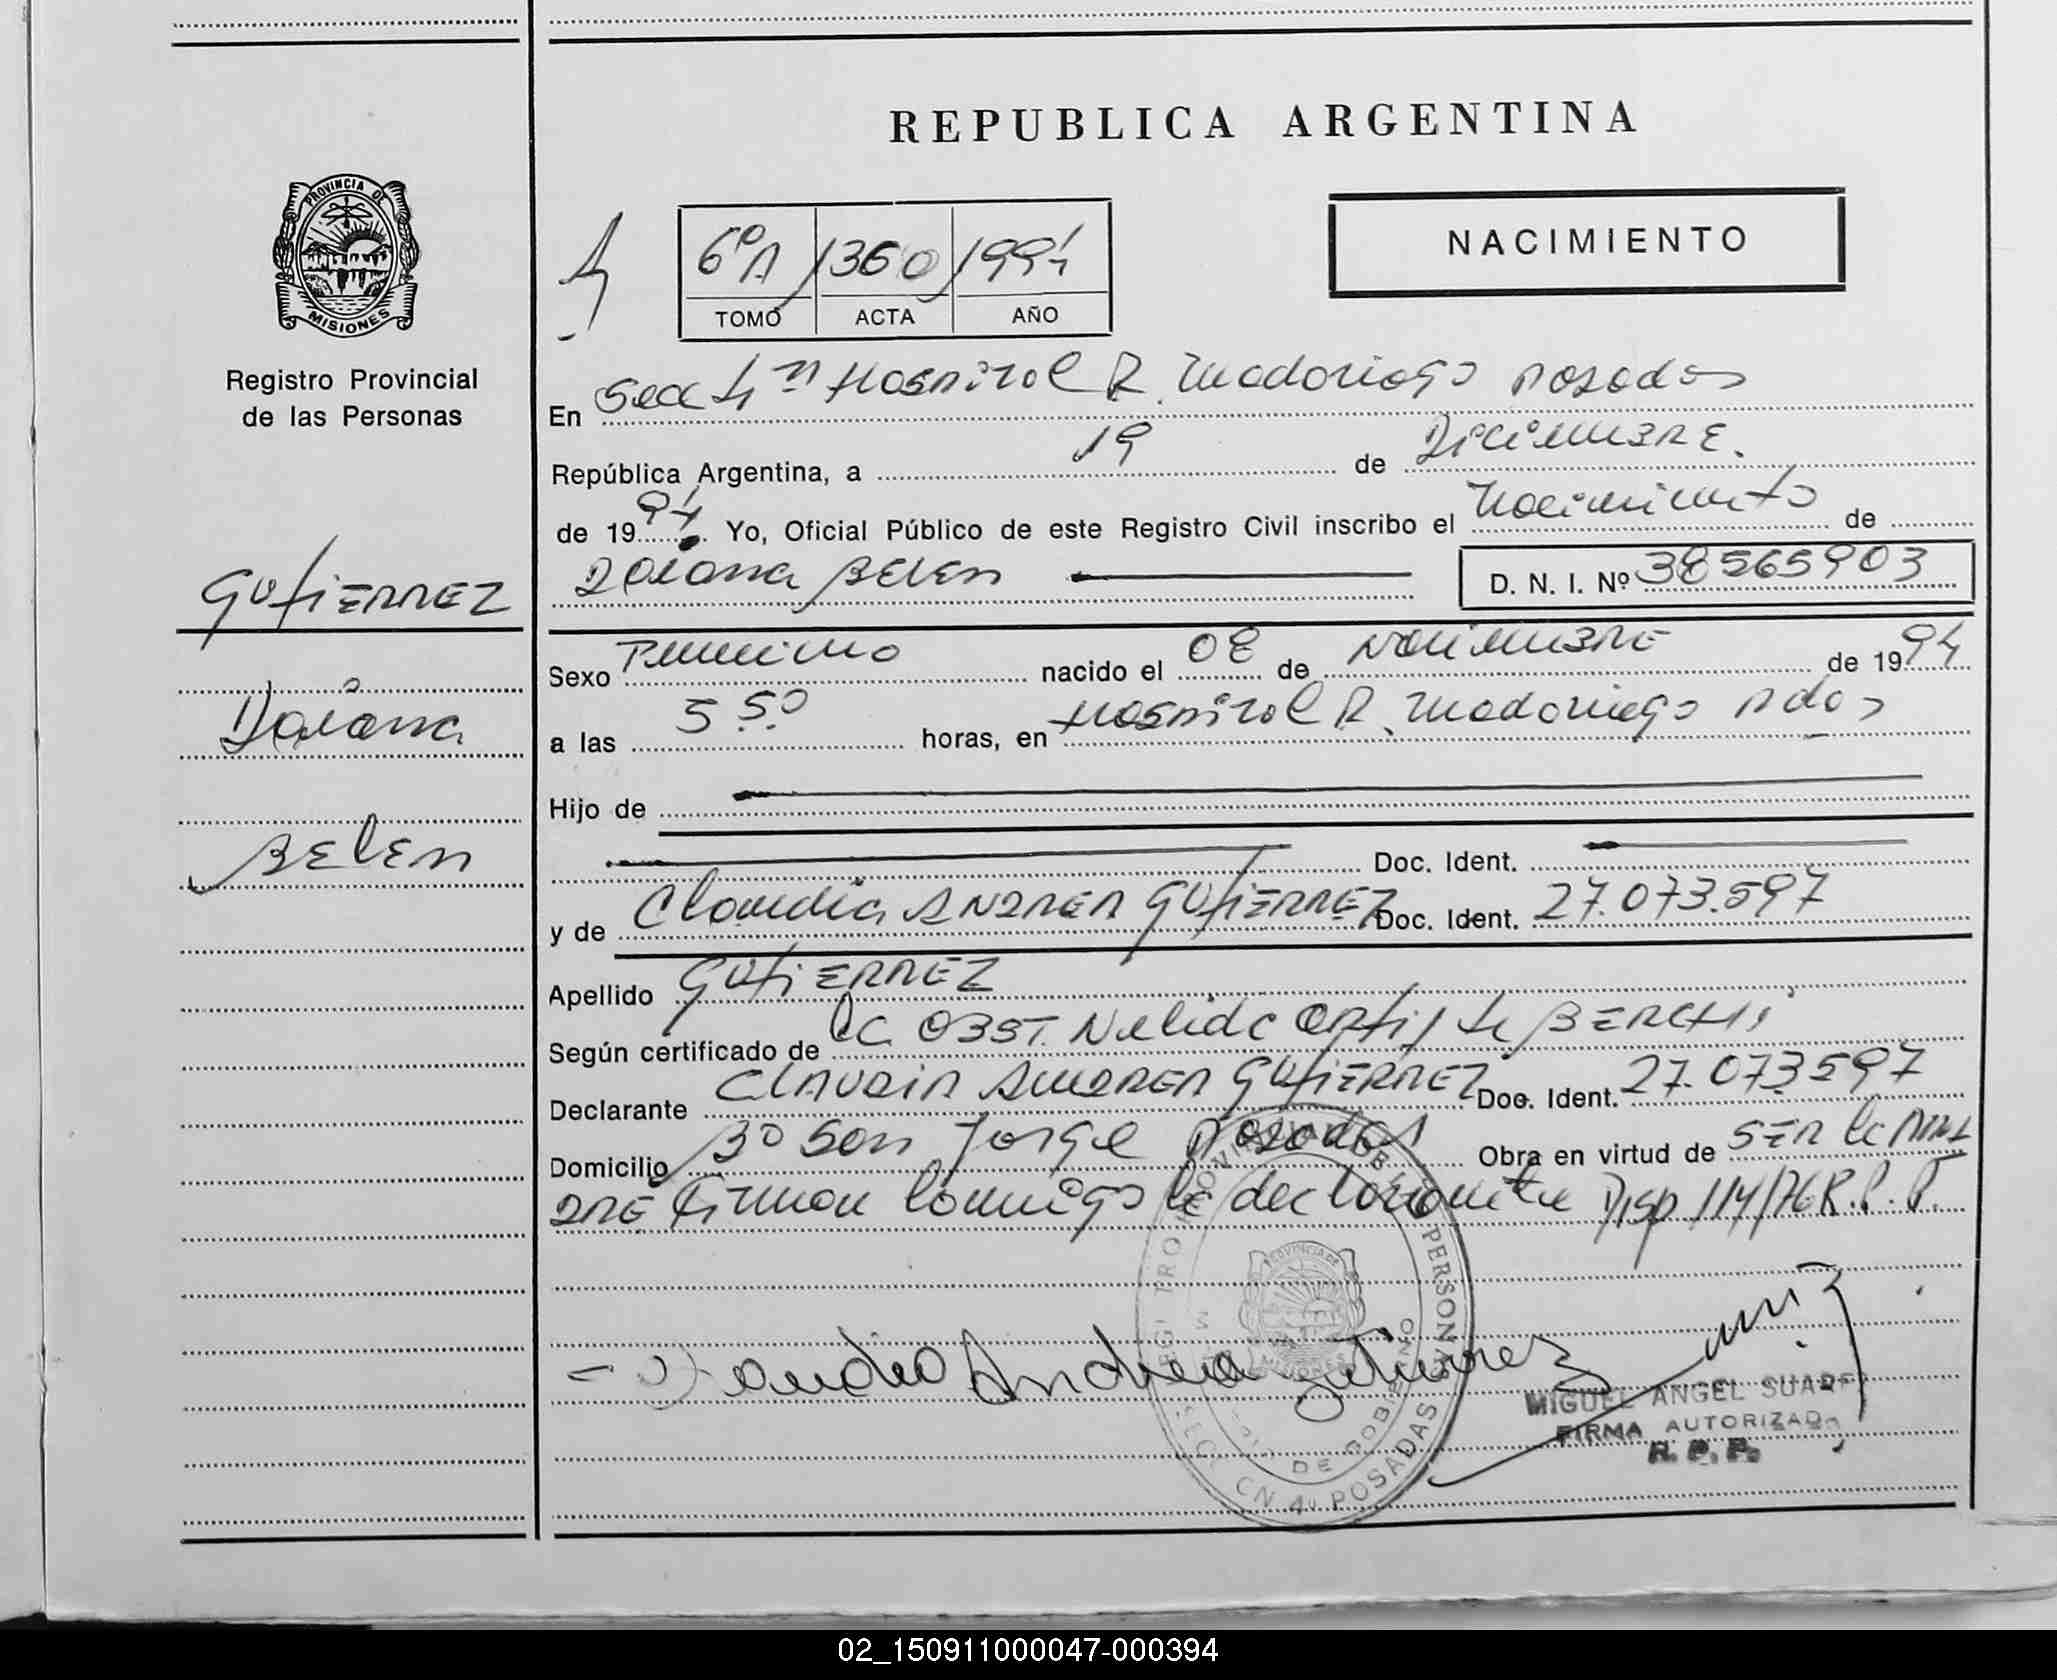 REPUBLICA ARGENTINA
PROVINCIA DE MISIONES
Registro Provincial
de las Personas
6ºA / 360 / 1994
TOMO ACTA AÑO
NACIMIENTO
En Secc 4ta Hospital R. Madariaga Posadas
República Argentina, a 19 de Diciembre.
de 1994. Yo, Oficial Público de este Registro Civil inscribo el Nacimiento de
Daiana Belen D. N. I. Nº 38565903
GUTIERREZ
Daiana
BELEN
Sexo Femenino nacido el 08 de Noviembre de 1994
a las 5 50 horas, en Hospital R. Madariaga Pdas
Hijo de
Doc. Ident.
y de Claudia ANDREA GUTIERREZ Doc. Ident. 27.073.597
Apellido GUTIERREZ
Según certificado de la OBST. Nelida Ortiz de BERCHI
Declarante CLAUDIA ANDREA GUTIERREZ Doc. Ident. 27.073597
Domicilio Bº San Jorge Posadas Obra en virtud de SER la MA
DRE Firman conmigo la declarante Disp 114/76 R.P.P.
Claudia Andrea Gutierrez
MIGUEL ANGEL SUAREZ
FIRMA AUTORIZADA
R. P. P.
PROVINCIA DE
MISIONES
DE GOBIERNO
POSADAS
02_150911000047-000394